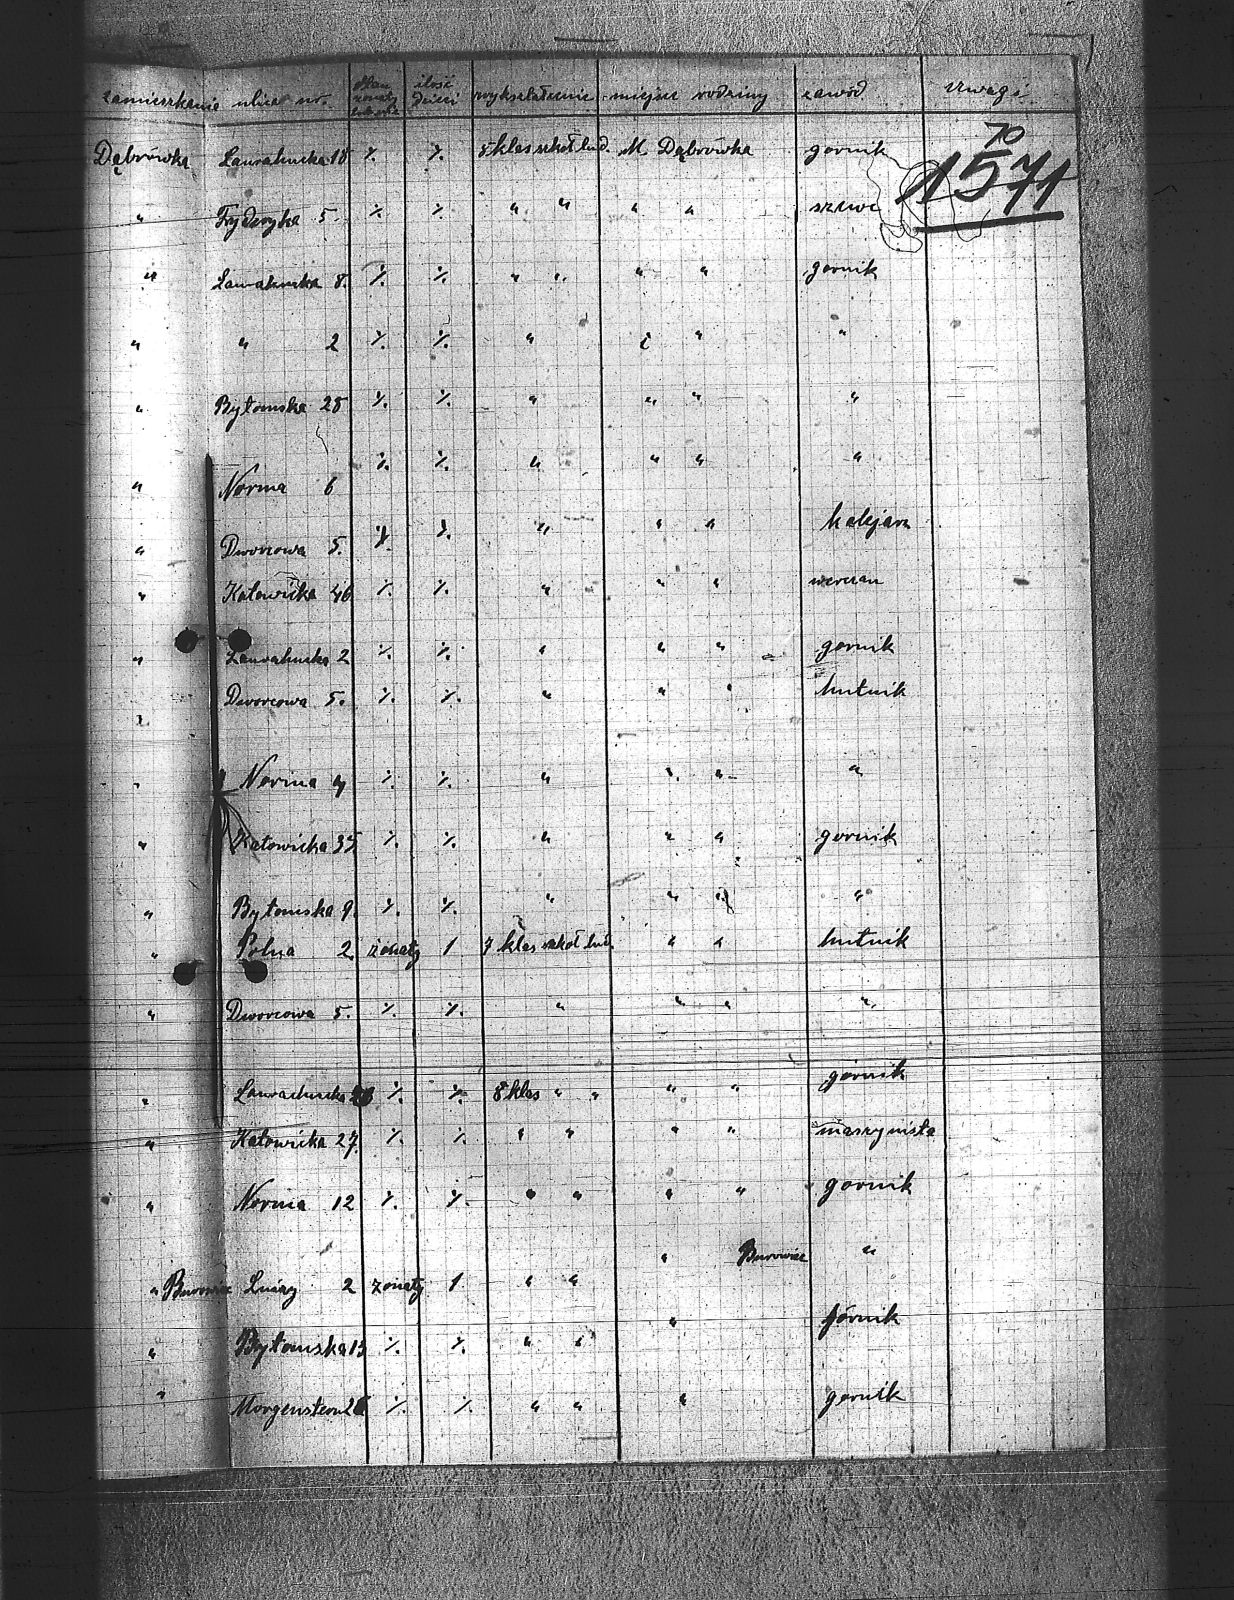 zamieszkanie ulica nr. stan ilość dzieci wykształcenie miejsce rodziny zawód Uwagi
70
1571
Dąbrówka Laurahucka 18 ٪ ٪ 8 klas szkoł lud. M. Dąbrówka gornik
" Frydryka 5 ٪ ٪ " " " " szewc
" Laurahucka 8. ٪ ٪ " " " " gornik
" " 2 ٪ ٪ " " " "
" Bytomska 28 ٪ ٪ " " " "
" Norma 6 ٪ ٪ " " " "
" Dworcowa 5. ٪ ٪ " " " kolejarz
" Katowicka 46 ٪ ٪ " " "
" Laurahucka 2 ٪ ٪ " " " gornik
" Dworcowa 5. ٪ ٪ " " " hutnik
" Norma 4 ٪ ٪ " " " "
" Katowicka 35. ٪ ٪ " " " gornik
" Bytomska 9. ٪ ٪ " " " "
" Polna 2. żonaty 1 7 klas szkoł lud. " " hutnik
" Dworcowa 5. ٪ ٪ " " " "
" Laurahucka ٪ ٪ 8 klas " " " " górnik
" Katowicka 27. ٪ ٪ " " " " maszynista
" Norma 12 ٪ ٪ " " " " gornik
" Burowiec 2 żonaty 1 " " " Burowiec "
" Bytomska 13 ٪ ٪ " " " górnik
" Morgenstern ٪ ٪ " " " gornik